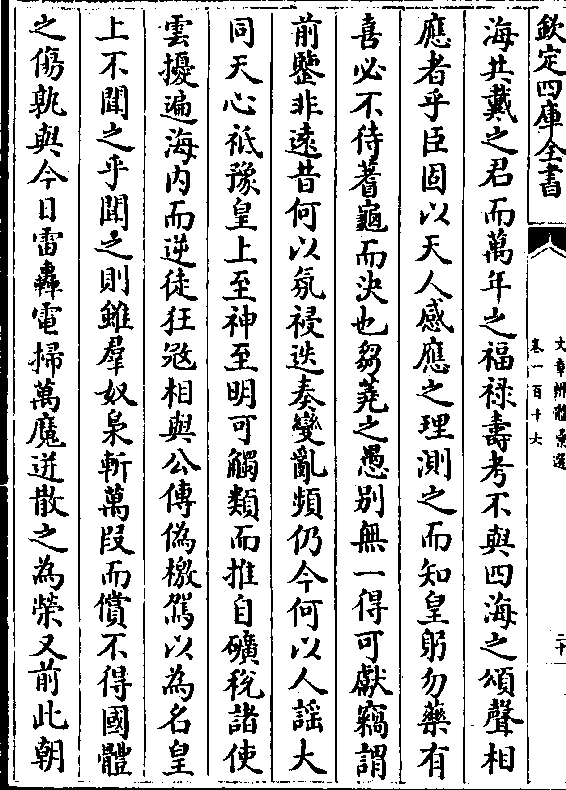 欽定四庫全書
文章辨體彙選
卷一百十六
二十
海共戴之君而萬年之福祿壽考不與四海之頌聲相
應者乎臣固以天人感應之理測之而知皇躬勿藥有
喜必不待蓍龜而決也芻蕘之愚別無一得可獻竊謂
前鑒非遠昔何以氛祲迭奏變亂頻仍今何以人謡大
同天心祗豫皇上至神至明可觸類而推自礦稅諸使
雲擾遍海内而逆徒狂逞相與公傳偽檄駕以為名皇
上不聞之乎聞之則雖羣奴梟斬萬段而償不得國體
之傷孰與今日雷轟電掃萬魔迸散之為榮又前此朝